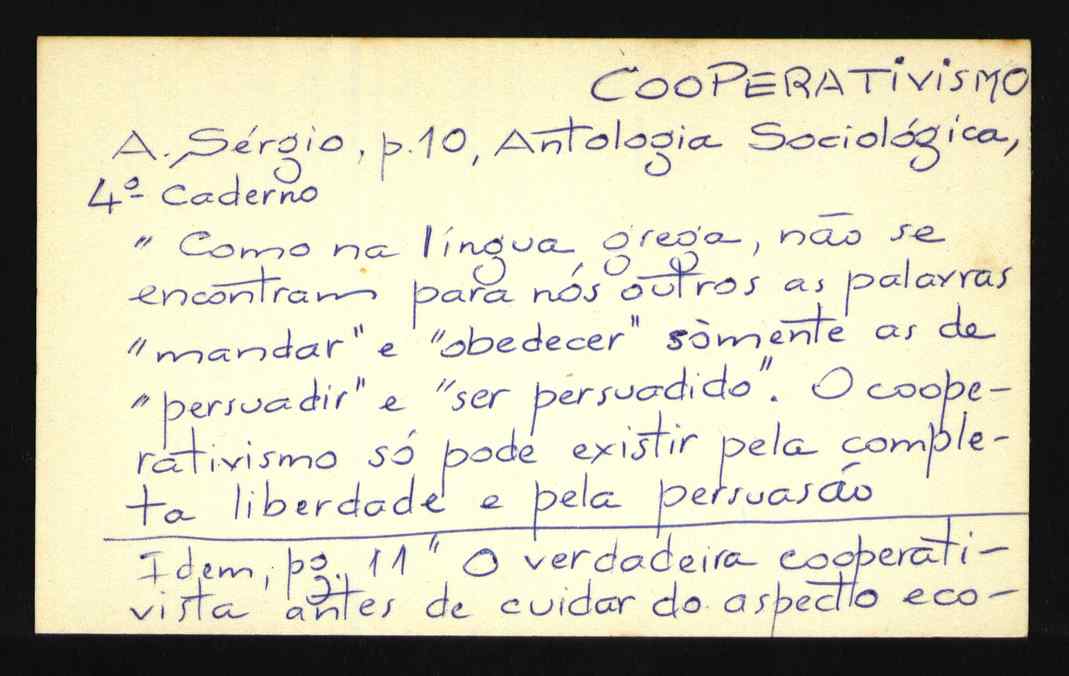 COOPERATiViSMO
A. Sérgio, p.10, Antologia Sociológica,
4º Caderno
" Como na língua grega, não se
encontram para nós outros as palavras
"mandar" e "obedecer" sòmente as de
"persuadir" e "ser persuadido". O coope-
rativismo só pode existir pela comple-
ta liberdade e pela persuasão
Idem, pg. 11 " O verdadeira cooperati-
vista antes de cuidar do aspecto eco-